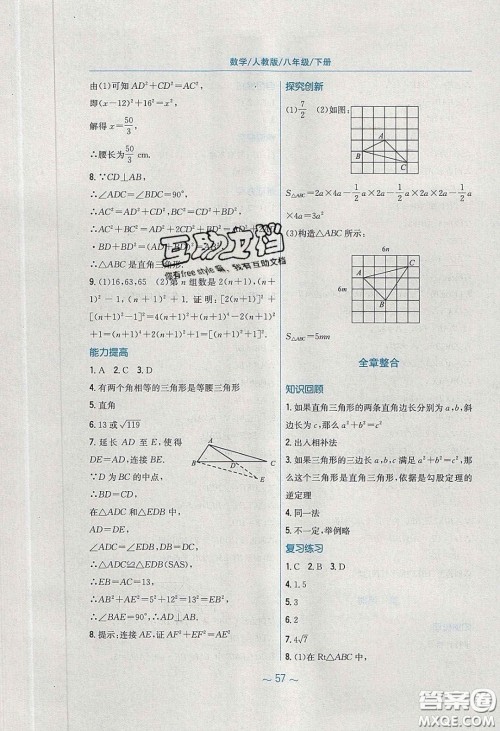 数学/人教版/八年级/下册
由(1)可知 AD²+CD²=AC²,
即(x-12)²+16²=x²,
解得 x=50/3,
∴腰长为50/3 cm.
8.∵CD⊥AB,
∴∠ADC=∠BDC=90°,
∴AC²=AD²+CD²,BC²=CD²+BD²
∴△ABC 是直角三角形.
9.(1)16,63,65 (2)第 n 组数是 2(n+1),(n+
1)²-1,(n+1)²+1. 证明:[2(n+1)]²+
[(n+1)²-1]²=4(n+1)²+(n+1)⁴-2(n+
1)²+1=(n+1)⁴+2(n+1)²+1=[(n+1)²+1]².
能力提高
1. A 2. C 3. D
4. 有两个角相等的三角形是等腰三角形
5. 直角
6. 13 或 √119
7. 延长 AD 至 E,使得
DE=AD,连接 DE.
∵D 为 BC 的中点,
∴CD=BD,
在△ADC 和△EDB 中,
AD=DE,
∠ADC=∠EDB,BD=CD,
∴△ADC≌△EDB(SAS),
∴EB=AC=13,
∴AB²+AE²=5²+12²=13²=EB²,
∴∠BAE=90°,∴AD⊥AB
8. 提示:连接 AE,证 EF²=EA²=AF².
A
B
D
C
E
探究创新
(1)7/2 (2)如图:
A
B
C
S△ABC=2a×4a-1/2a×2a-1/2×2a×2a-1/2
×a×4a=3a²
(3)构造△ABC 所示:
6n
6m
A
B
C
S△ABC=5mn
全章整合
知识回顾
1. 如果直角三角形的两条直角边长分别为 a,b,斜
边长为 c,那么 a²+b²=c²
2. 出入相补法
3. 如果三角形的三边长 a,b,c 满足 a²+b²=c²,那
么这个三角形是直角三角形,依据是勾股定理的
逆定理
4. 同一法
5. 不一定,举例略
复习练习
1. C 2. B 3. D
4. 1.5
5. 3
6. 2
7. 4√7
8. (1)在 Rt△ABC 中,
~ 57 ~
互助文档
你有free style 嘛,我有互助文档
答案圈
MXQE.COM